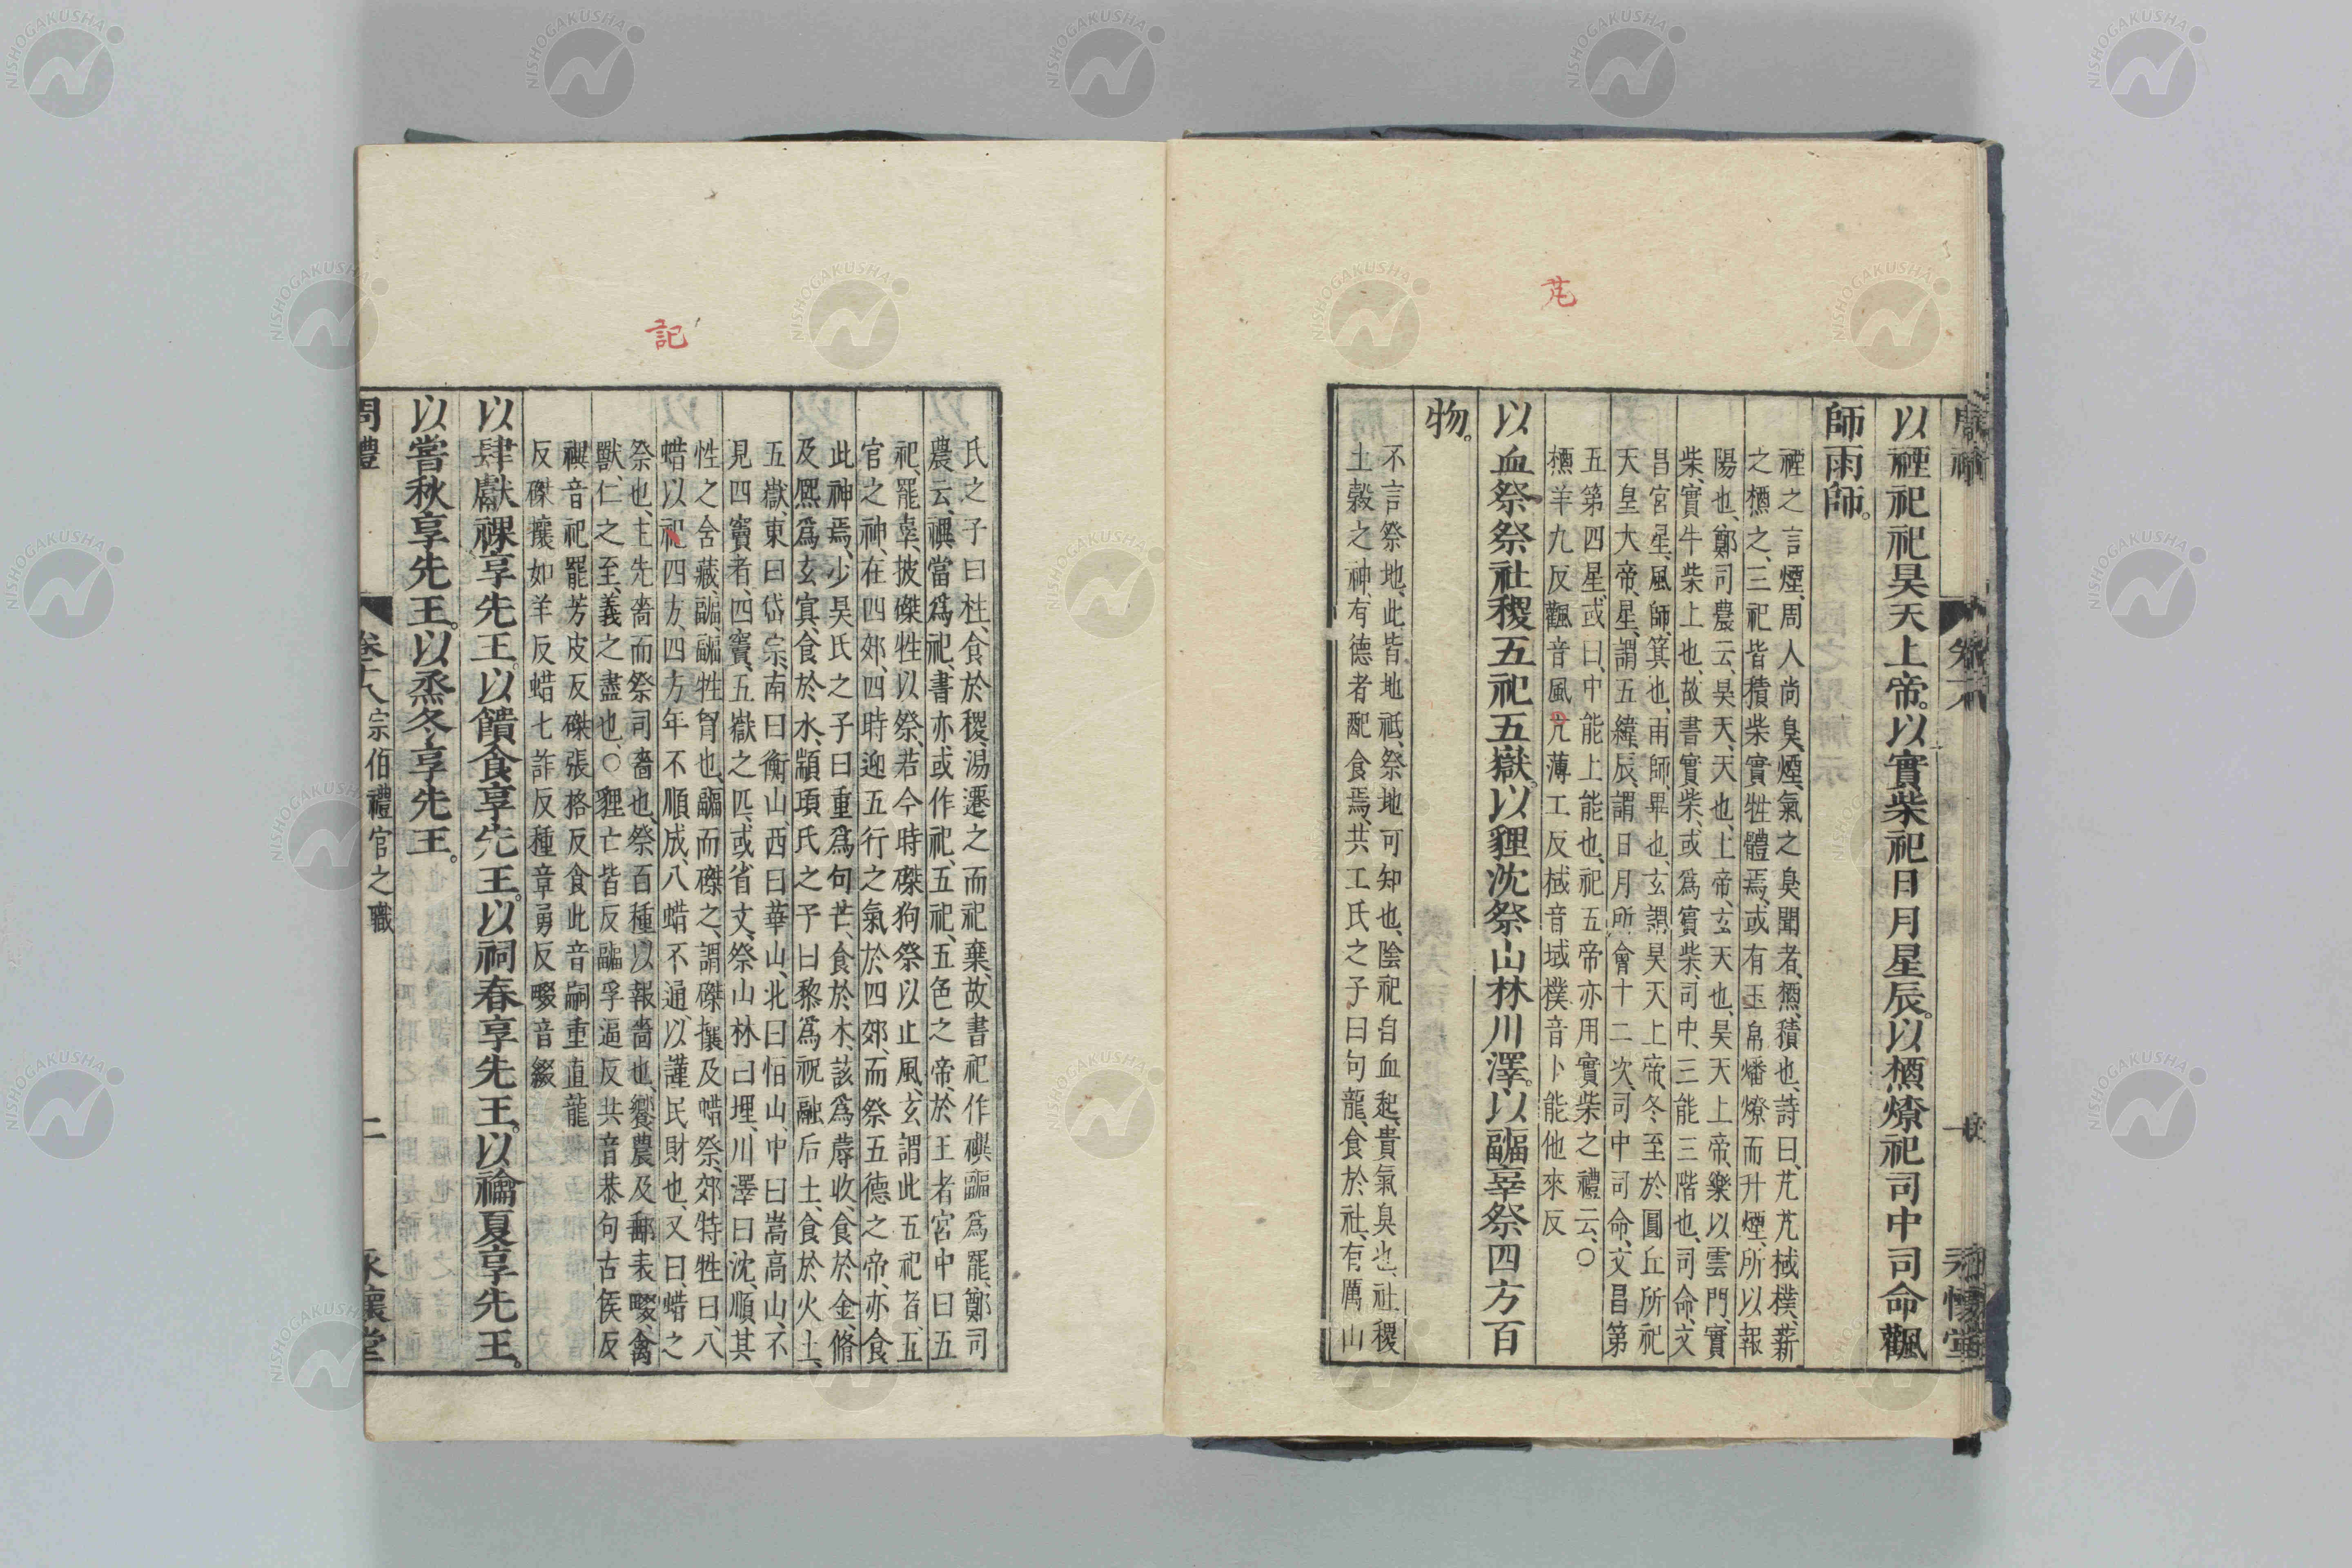 芃
周禮 卷十八 一 永懷堂
以禋祀祀昊天上帝。以實柴祀日月星辰。以槱燎祀司中司命飌
師雨師。
禋之言煙、周人尚臭、煙、氣之臭聞者、槱、積也、詩曰、芃芃棫樸、薪
之槱之、三祀皆積柴實牲體焉、或有玉帛燔燎而升煙、所以報
陽也、鄭司農云、昊天、天也、上帝、玄天也、昊天上帝、樂以雲門、實
柴、實牛柴上也、故書實柴、或爲賓柴、司中、三能三階也、司命、文
昌宮星、風師、箕也、雨師、畢也、玄謂、昊天上帝、冬至於圓丘所祀
天皇大帝、星、謂五緯、辰、謂日月所會十二次、司中司命、文昌第
五第四星、或曰、中能上能也、祀五帝亦用實柴之禮云、○
槱羊九反飌音風芃薄工反棫音域樸音卜能他來反
以血祭祭社稷五祀五嶽。以貍沈祭山林川澤。以疈辜祭四方百
物。
不言祭地、此皆地祇、祭地可知也、陰祀自血起、貴氣臭也、社稷
土穀之神、有德者配食焉、共工氏之子曰句龍、食於社、有厲山
記
氏之子曰柱、食於稷、湯遷之而祀棄、故書祀作禩疈爲罷、鄭司
農云、禩當爲祀、書亦或作祀、五祀、五色之帝、於王者宮中曰五
祀、罷辜、披磔牲以祭、若今時磔狗祭以止風、玄謂此五祀者、五
官之神、在四郊、四時迎五行之氣於四郊、而祭五德之帝、亦食
此神焉、少昊氏之子曰重爲句芒、食於木、該爲蓐收、食於金、脩
及熙爲玄冥、食於水、顓頊氏之子曰黎爲祝融后土、食於火土、
五嶽、東曰岱宗、南曰衡山、西曰華山、北曰恒山、中曰嵩高山、不
見四竇者、四竇、五嶽之匹、或省文、祭山林曰埋、川澤曰沈、順其
性之含藏、疈、疈牲胷也、疈而磔之、謂磔攘及蜡祭、郊特牲曰、八
蜡以祀四方、四方年不順成、八蜡不通、以謹民財也、又曰、蜡之
祭也、主先嗇而祭司嗇也、祭百種以報嗇也、饗農及郵表畷、禽
獸、仁之至、義之盡也、○貍亡皆反疈孚逼反共音恭句古侯反
禩音祀罷芳皮反磔張格反食此音嗣重直龍
反磔攘如羊反蜡七詐反種章勇反畷音綴
以肆獻祼享先王。以饋食享先王。以祠春享先王。以禴夏享先王。
以嘗秋享先王。以烝冬享先王。
周禮 卷十八宗伯禮官之職 二 永懷堂